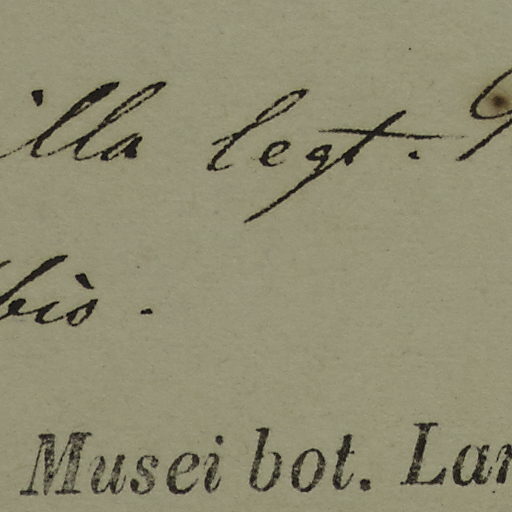 illa legt.
bio.
Musei bot. Lan